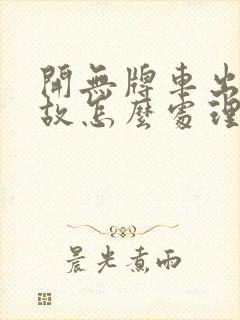 開無牌車出
故怎麼處理
晨光煮雨